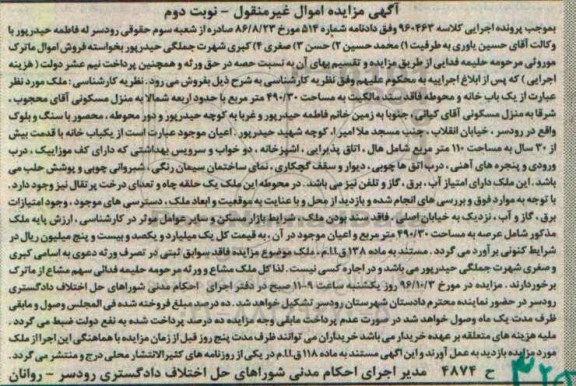 آگهی مزایده اموال غیرمنقول - نوبت دوم
بموجب پرونده اجرایی کلاسه ۹۶۰۴۶۳ وفق دادنامه شماره ۵۱۴ مورخ ۸۶/۸/۲۳ صادره از شعبه سوم حقوقی رودسر له فاطمه حیدرپور با
وکالت آقای حسین یاوری به طرفیت ۱) محمد حسین ۲) حسن ۳) صغری ۴) کبری شهرت جملگی حیدرپور بخواسته فروش اموال ماترک
موروثی مرحومه حلیمه فدایی از طریق مزایده و تقسیم بهای آن به نسبت حصه در حق ورثه و همچنین پرداخت نیم عشر دولت (هزینه
اجرایی) که پس از ابلاغ اجراییه به محکوم علیهم وفق نظریه کارشناسی به شرح ذیل بفروش می رود. نظریه کارشناسی: ملک مورد نظر
عبارت از یک باب خانه و محوطه فاقد سند مالکیت به مساحت ۴۹۰/۳۰ متر مربع با حدود اربعه شمالا به منزل مسکونی آقای محجوب ،
شرقا به منزل مسکونی آقای کیانی ، جنوبا به زمین خانم فاطمه حیدرپور و غربا به کوچه حیدرپور و دور محوطه ، محصور با سنگ و بلوک
واقع در رودسر ، خیابان انقلاب ، جنب مسجد ملا امیرا، کوچه شهید حیدرپور . اعیان موجود عبارت است از یکباب خانه با قدمت بیش
از ۳۰ سال به مساحت ۱۱۰ متر مربع شامل هال ، اتاق پذیرایی ، اشپزخانه ، دو خواب و سرویس بهداشتی که دارای کف موزاییک ، درب
ورودی و پنجره های آهنی ، درب اتق ها چوبی ، دیوار و سقف گچکاری ، نمای ساختمان سیمان رنگی ، شیروانی چوبی و پوشش حلب می
باشد. این ملک دارای امتیاز آب ، برق ، گاز و تلفن نیز می باشد. در محوطه این ملک یک حلقه چاه و تعدای درخت پرتقال نیز وجود دارد.
با توجه به موارد فوق و بررسی های انجام شده و بازدید از محل و با عنایت به موقعیت و ابعاد ملک ، دسترسی های موجود ، وجود امتیازات
برق ، گاز و آب ، نزدیک به خیابان اصلی ، فاقد سند بودن ملک ، شرایط بازار مسکن و سایر عوامل موثر در کارشناسی ، ارزش پایه ملک
مذکور شامل عرصه به مساحت ۴۹۰/۳۰ متر مربع و اعیان موجود در آن ، به قیمت کل یک میلیارد و یکصد و بیست و پنج میلیون ریال در
شرایط کنونی برآورد می گردد . مستند به ماده ۱۳۸ ق.ا.م ، ملک موضوع مزایده فاقد سوابق ثبتی در تصرف ورثه دعوی به اسامی کبری
و صغری شهرت جملگی حیدرپور می باشد و در اجاره کسی نیست . لذا کل ملک مشاع و ورثه مرحومه حلیمه فدائی سهم مشاع از ماترک
برخوردارند . مزایده در مورخ ۹۶/۱۰/۳ روز یکشنبه ساعت ۹-۱۱ صبح در دفتر اجرای احکام مدنی شوراهای حل اختلاف دادگستری
رودسر در حضور نماینده محترم دادستان شهرستان رودسر تشکیل خواهد شد . ده درصد مبلغ فروخته شده فی المجلس وصول و مابقی
ظرف مدت یک ماه وصول خواهد شد در صورت عدم پرداخت مابقی وجه مزایده ده درصد پرداخت شده به نفع دولت ضبط می گردد .
ملیه هزینه های متعلقه بر عهده خریدار می باشد خریداران می توانند ظرف مدت پنج روز قبل از زمان مزایده با هماهنگی این اجرا از ملک
مورد بازدید بعمل آورند و این آگهی مستند به ماده ۱۱۸ ق.ا.م در یکی از روزنامه های کثیرالانتشار محلی درج و منتشر می گردد .
ح ۴۸۷۴ مدیر اجرای احکام مدنی شوراهای حل اختلاف دادگستری رودسر - روانان